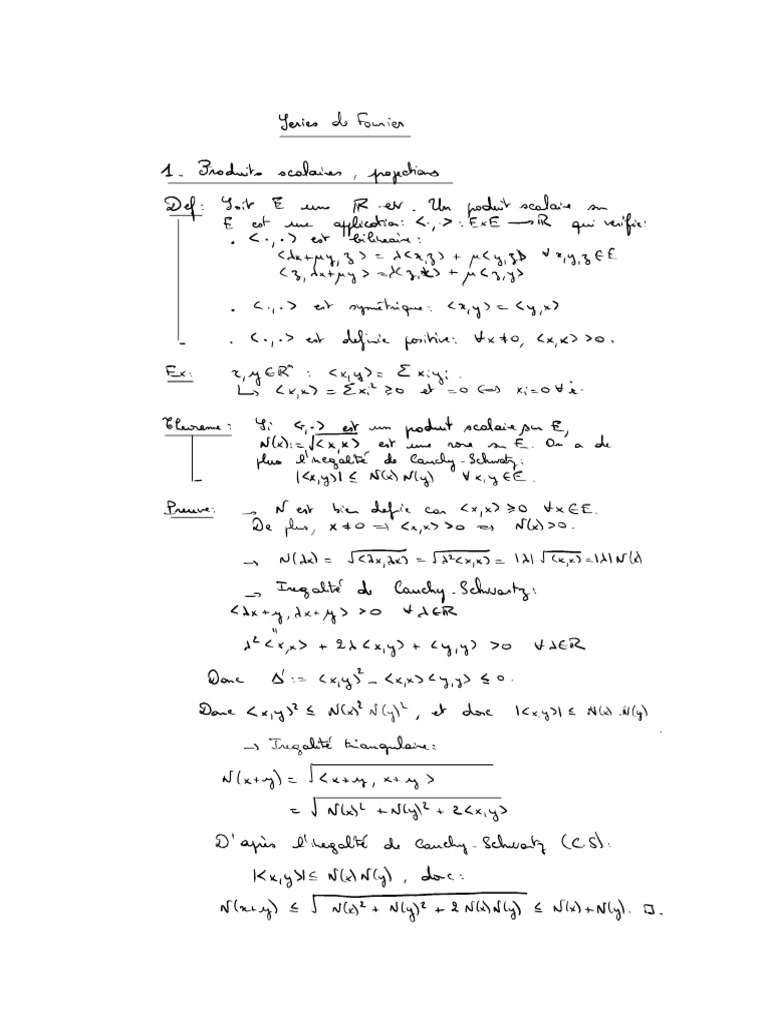 Series de Fourier
1 - Produits scalaires, projections
Def: Soit E une ℝ-ev. Un produit scalaire sur
E est une application: <.,.>: E×E → ℝ qui verifie:
. <.,.> est bilineaire:
<λx+μy, z> = λ<x,z> + μ<y,z> ∀x,y,z ∈ E
<z, λx+μy> = λ<z,x> + μ<z,y>
. <.,.> est symétrique: <x,y> = <y,x>
. <.,.> est definie positive: ∀x≠0, <x,x> >0.
Ex: x,y ∈ ℝⁿ : <x,y> = Σ xᵢyᵢ.
↳ <x,x> = Σxᵢ² ≥0 et =0 ⟺ xᵢ=0 ∀i.
Theoreme: Si <,.> est un produit scalaire sur E,
N(x):=√<x,x> est une norme sur E. On a de
plus l'inegalité de Cauchy-Schwartz:
|<x,y>| ≤ N(x) N(y) ∀x,y ∈ E.
Preuve: → N est bien definie car <x,x> ≥0 ∀x∈E.
De plus, x≠0 ⟹ <x,x> >0 ⟹ N(x)>0.
→ N(λx) = √<λx,λx> = √λ²<x,x> = |λ| √<x,x> = |λ| N(x)
→ Inegalité de Cauchy-Schwartz:
<λx+y, λx+y> >0 ∀λ∈ℝ
"
λ²<x,x> + 2λ<x,y> + <y,y> >0 ∀λ∈ℝ
Donc Δ' := <x,y>² - <x,x><y,y> ≤ 0.
Donc <x,y>² ≤ N(x)² N(y)², et donc |<x,y>| ≤ N(x).N(y)
→ Inegalité triangulaire:
N(x+y) = √<x+y, x+y>
= √N(x)² + N(y)² + 2<x,y>
D'après l'inegalité de Cauchy-Schwartz (CS):
|<x,y>| ≤ N(x)N(y), donc:
N(x+y) ≤ √N(x)² + N(y)² + 2 N(x)N(y) ≤ N(x)+N(y). □.